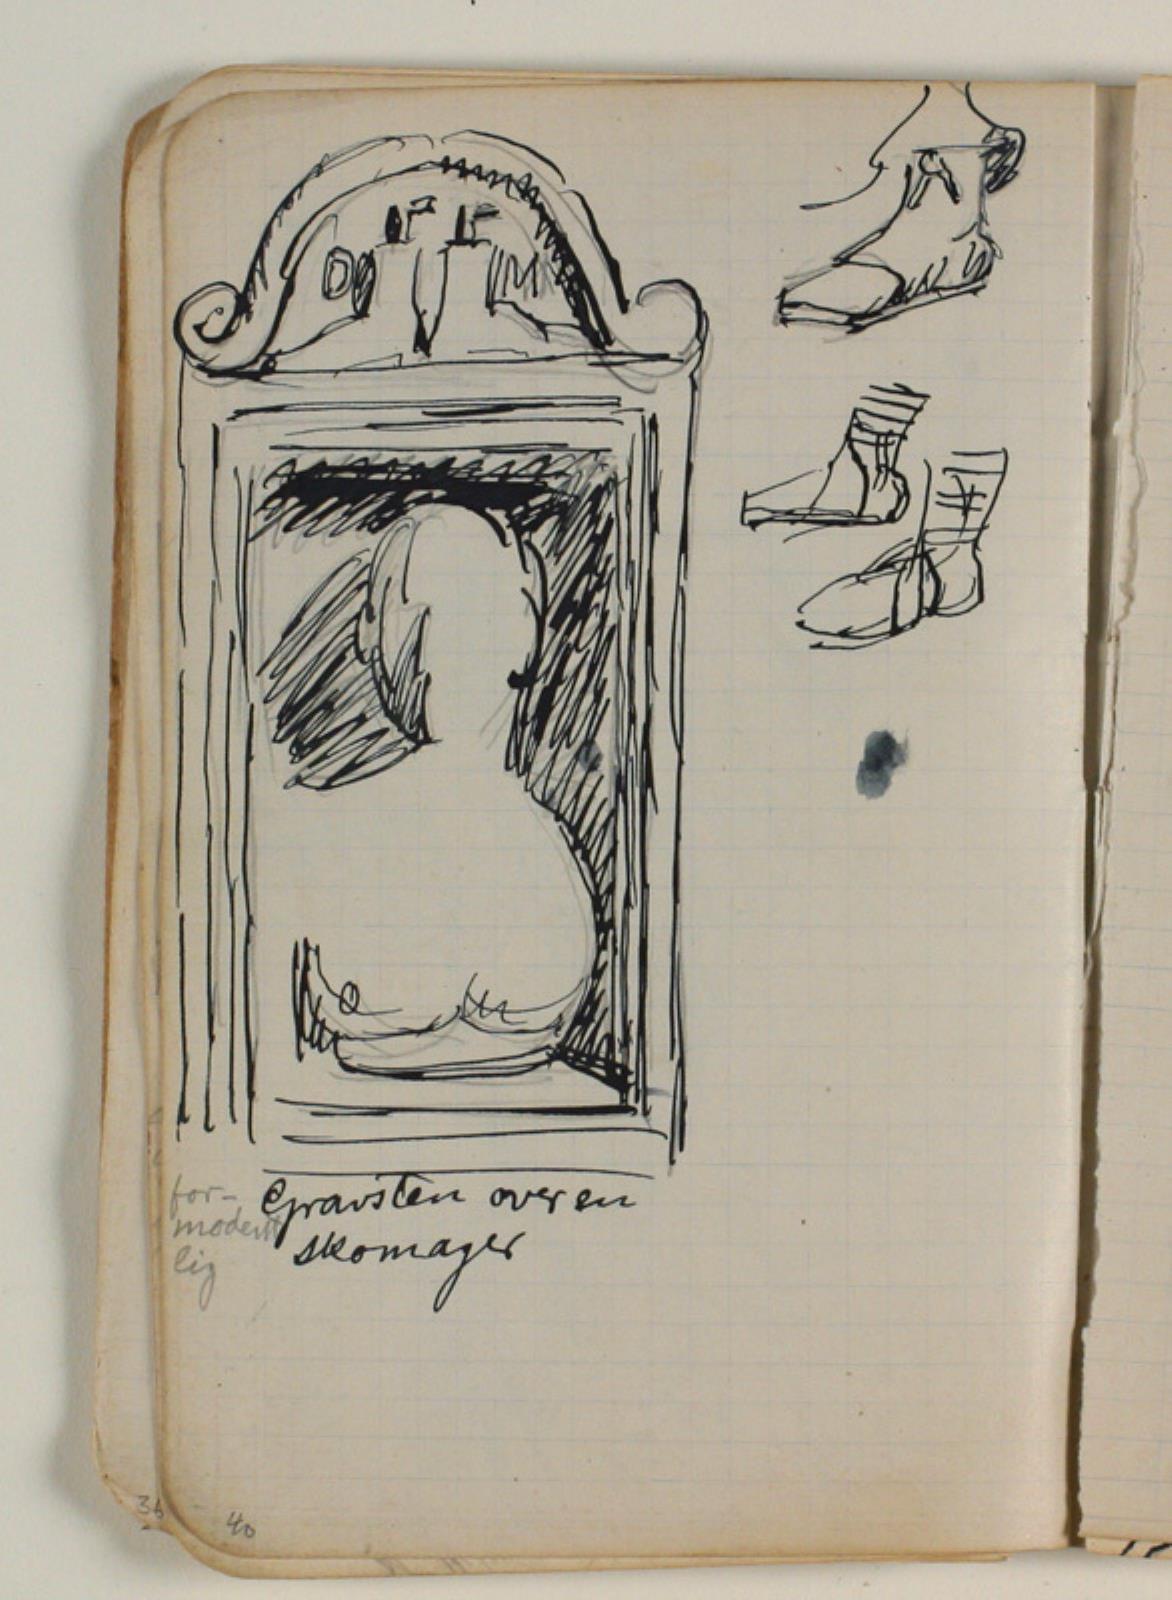 for-
modent
lig
Gravsten over en
skomager
36
40